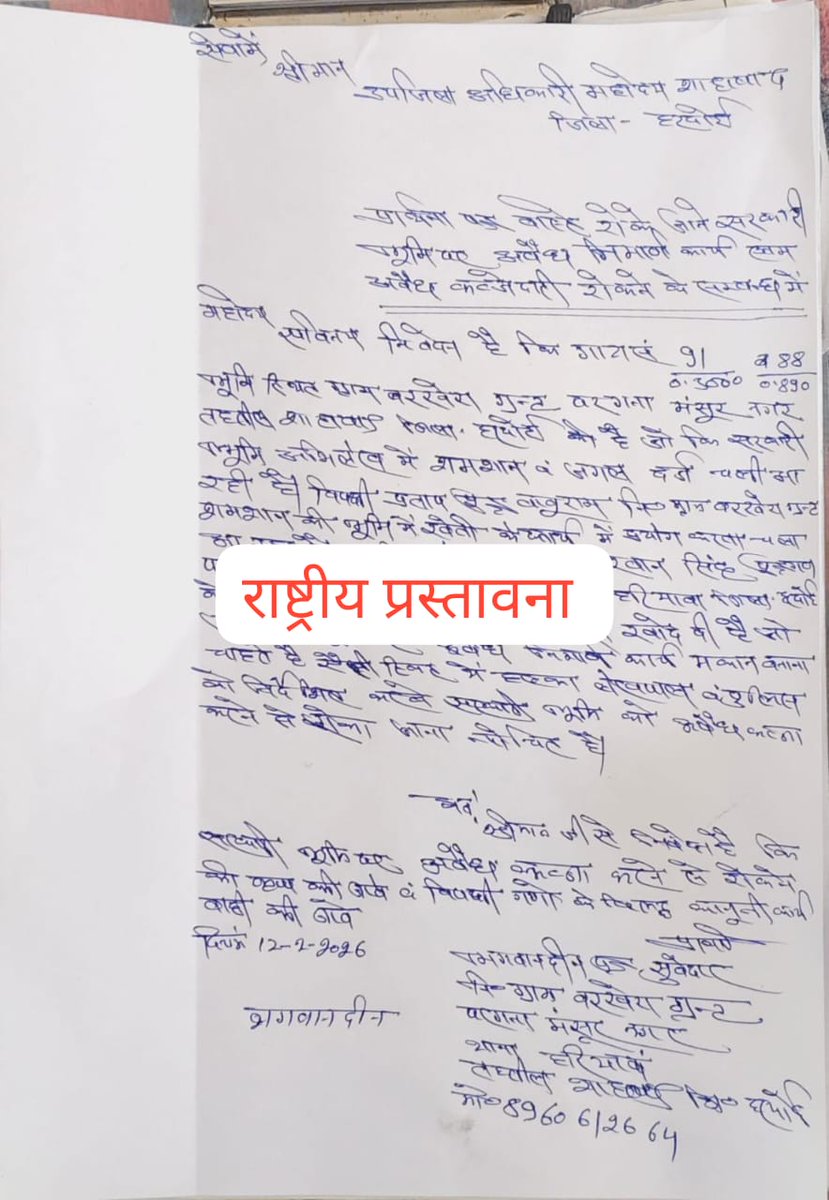 सेवामें
श्रीमान
उपजिला अधिकारी महोदय शाहाबाद
जिला - हरदोई
प्रार्थना पत्र वास्ते रोके जाने सरकारी
भूमि पर अवैध निर्माण कार्य एवम
अवैध कब्जेदारी रोकने के सम्बन्ध में
महोदय
सविनय निवेदन है कि गाटासं 91 व 88
0.890
भूमि स्थित ग्राम बरखेरा ग्रन्ट परगना मंसूर नगर
तहसील शाहाबाद जिला. हरदोई की है जो कि सरकारी
भूमि अभिलेख में शमशान व जंगल दर्ज चली आ
रही है। विपक्षी प्रताप पुत्र बाबूराम नि० ग्राम बरखेरा ग्रन्ट
शमशान की भूमि में खेती के कार्य में प्रयोग करता चला
सिंह
राष्ट्रीय प्रस्तावना
हरियावा जिला. हरदोई
खोद दी है जो
अवैध निर्माण कार्य मकान बनाना
चाहते है ऐसी स्थित में हल्का लेखपाल व पुलिस
को निर्देशित करके सरकारी भूमि को अवैध कब्जा
करने से रोका जाना न्यायोचित है।
अतः
श्रीमान जी से निवेदन है कि
सरकारी भूमि पर अवैध कब्जा करने से रोकने
की कृपा की जावे व विपक्षी गणों के खिलाफ कानूनी कार्य
वाही की जावे
दिनांक 12-2-2026
प्रार्थी
भगवानदीन पुत्र सुवेदार
नि० ग्राम बरखेरा ग्रन्ट
परगना मंसूर नगर
थाना हरियावां
तहसील शाहाबाद जि० हरदोई
मो० 8960612664
भगवानदीन